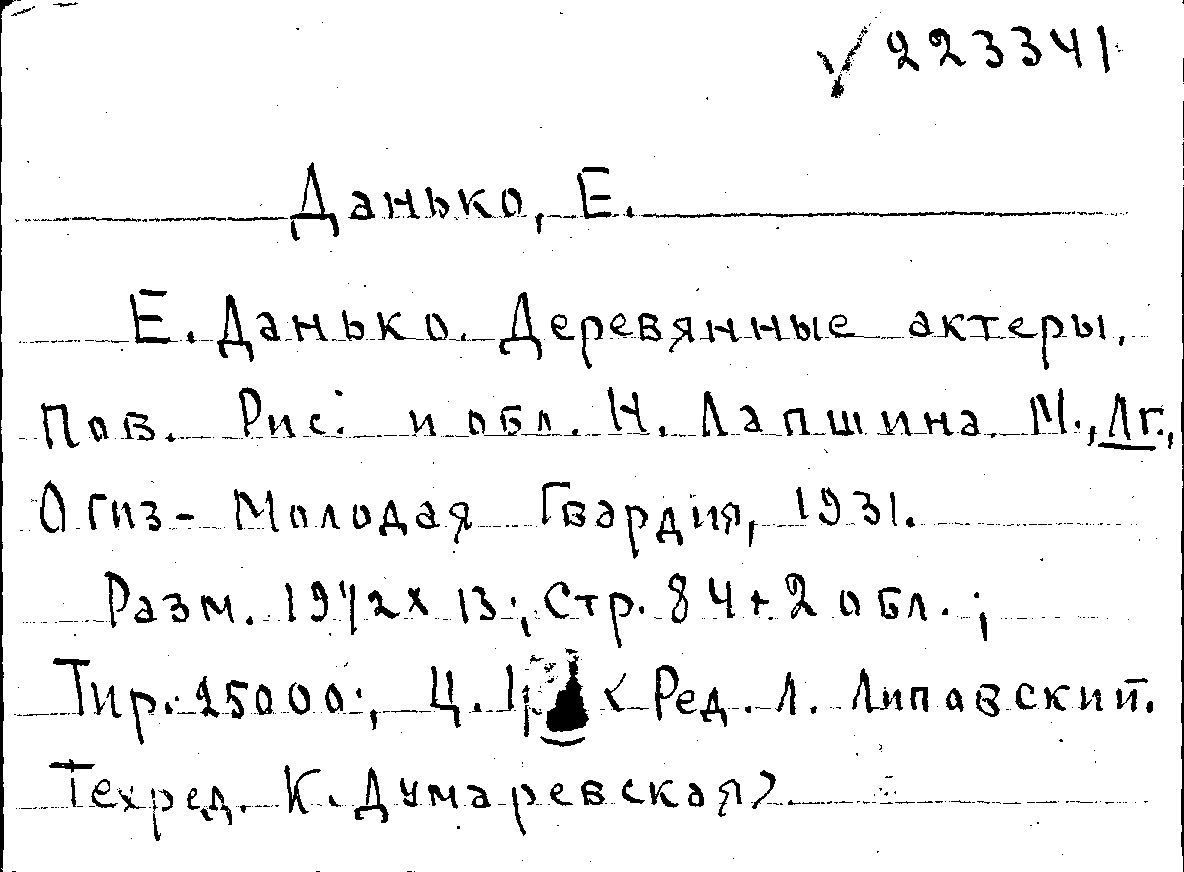 √ 223341
Данько, Е.
Е. Данько. Деревянные актеры.
Пов. Рис. и обл. Н. Лапшина. М., Лг.,
Огиз - Молодая Гвардия, 1931.
Разм. 19 1/2 х 13; Стр. 84 + 2 обл.;
Тир. 25000; Ц. 1р < Ред. Л. Липавский.
Техред. К. Думаревская>.